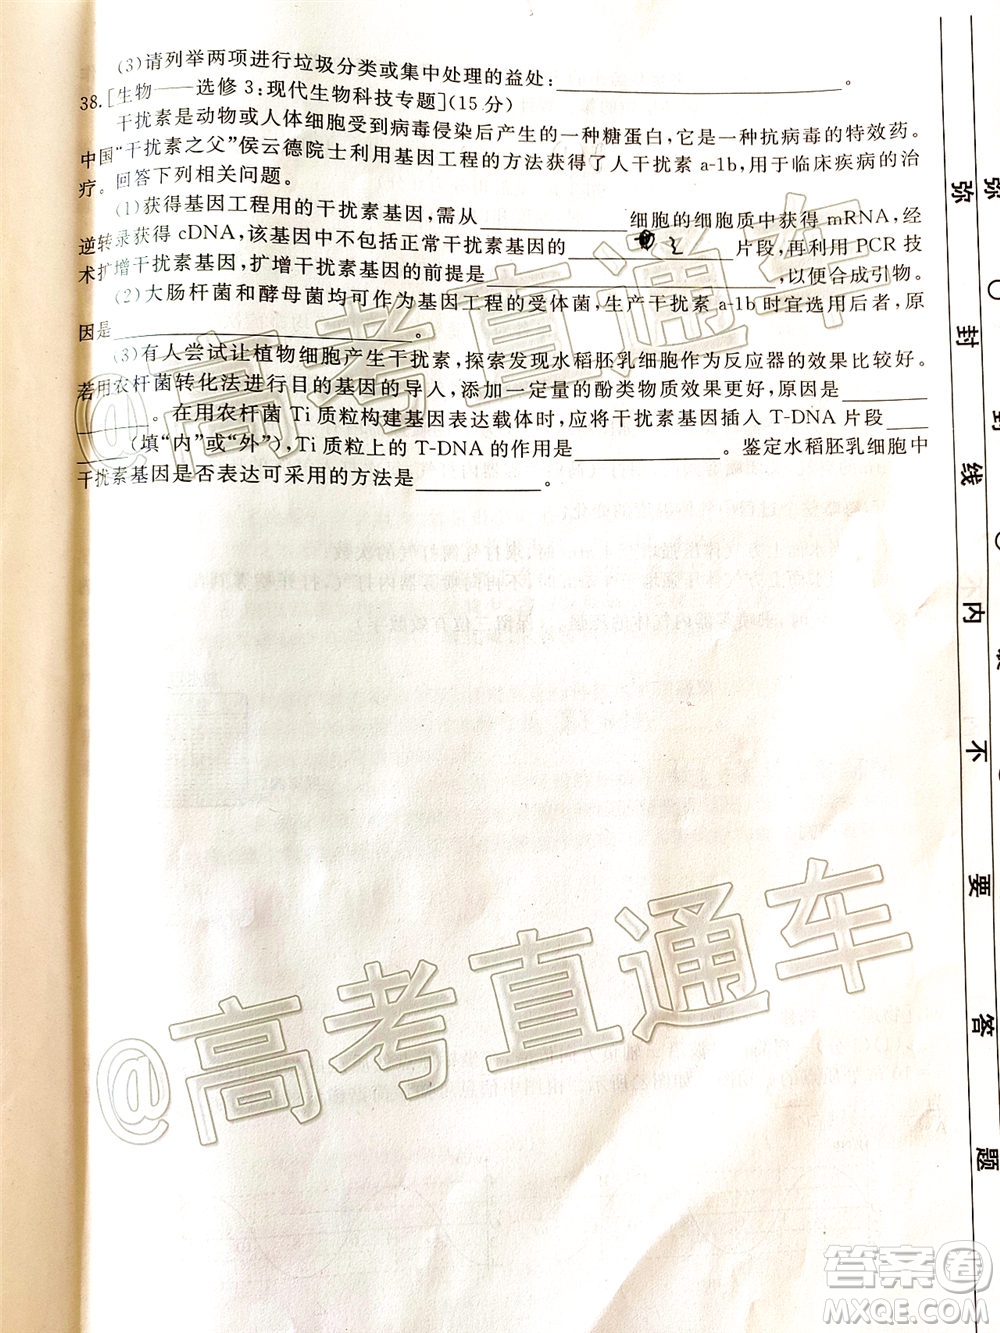 (3)请列举两项进行垃圾分类或集中处理的益处:____________。
38.[生物——选修3:现代生物科技专题](15分)
干扰素是动物或人体细胞受到病毒侵染后产生的一种糖蛋白,它是一种抗病毒的特效药。
中国“干扰素之父”侯云德院士利用基因工程的方法获得了人干扰素 a-1b,用于临床疾病的治
疗。回答下列相关问题。
(1)获得基因工程用的干扰素基因,需从____________细胞的细胞质中获得 mRNA,经
逆转录获得 cDNA,该基因中不包括正常干扰素基因的____________片段,再利用 PCR 技
术扩增干扰素基因,扩增干扰素基因的前提是____________,以便合成引物。
(2)大肠杆菌和酵母菌均可作为基因工程的受体菌,生产干扰素 a-1b 时宜选用后者,原
因是____________。
(3)有人尝试让植物细胞产生干扰素,探索发现水稻胚乳细胞作为反应器的效果比较好。
若用农杆菌转化法进行目的基因的导人,添加一定量的酚类物质效果更好,原因是____________
______。在用农杆菌 Ti 质粒构建基因表达载体时,应将干扰素基因插入 T-DNA 片段______
______(填“内”或“外”),Ti 质粒上的 T-DNA 的作用是____________。鉴定水稻胚乳细胞中
干扰素基因是否表达可采用的方法是____________。
弥
封
线
内
不
要
答
题
弥
封
@高考直通车
@高考直通车
答案圈
MXQE.COM